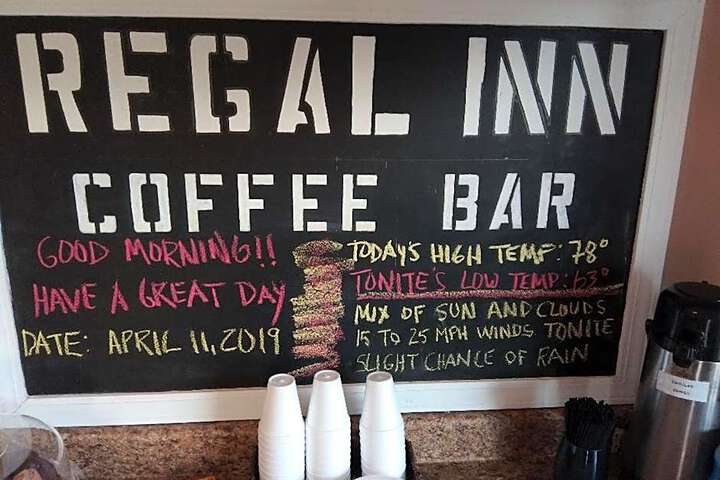 REGAL INN
COFFEE BAR
GOOD MORNING!!
HAVE A GREAT DAY
DATE: APRIL 11, 2019
TODAY'S HIGH TEMP: 78°
TONITE'S LOW TEMP: 63°
MIX OF SUN AND CLOUDS
15 TO 25 MPH WINDS TONITE
SLIGHT CHANCE OF RAIN